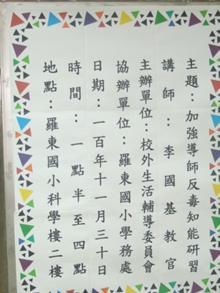 主題：加強導師反毒知能研習
講師：李國基教官
主辦單位：校外生活輔導委員會
協辦單位：羅東國小學務處
日期：一百年十一月三十日
時間：一點半至四點
地點：羅東國小科學樓二樓